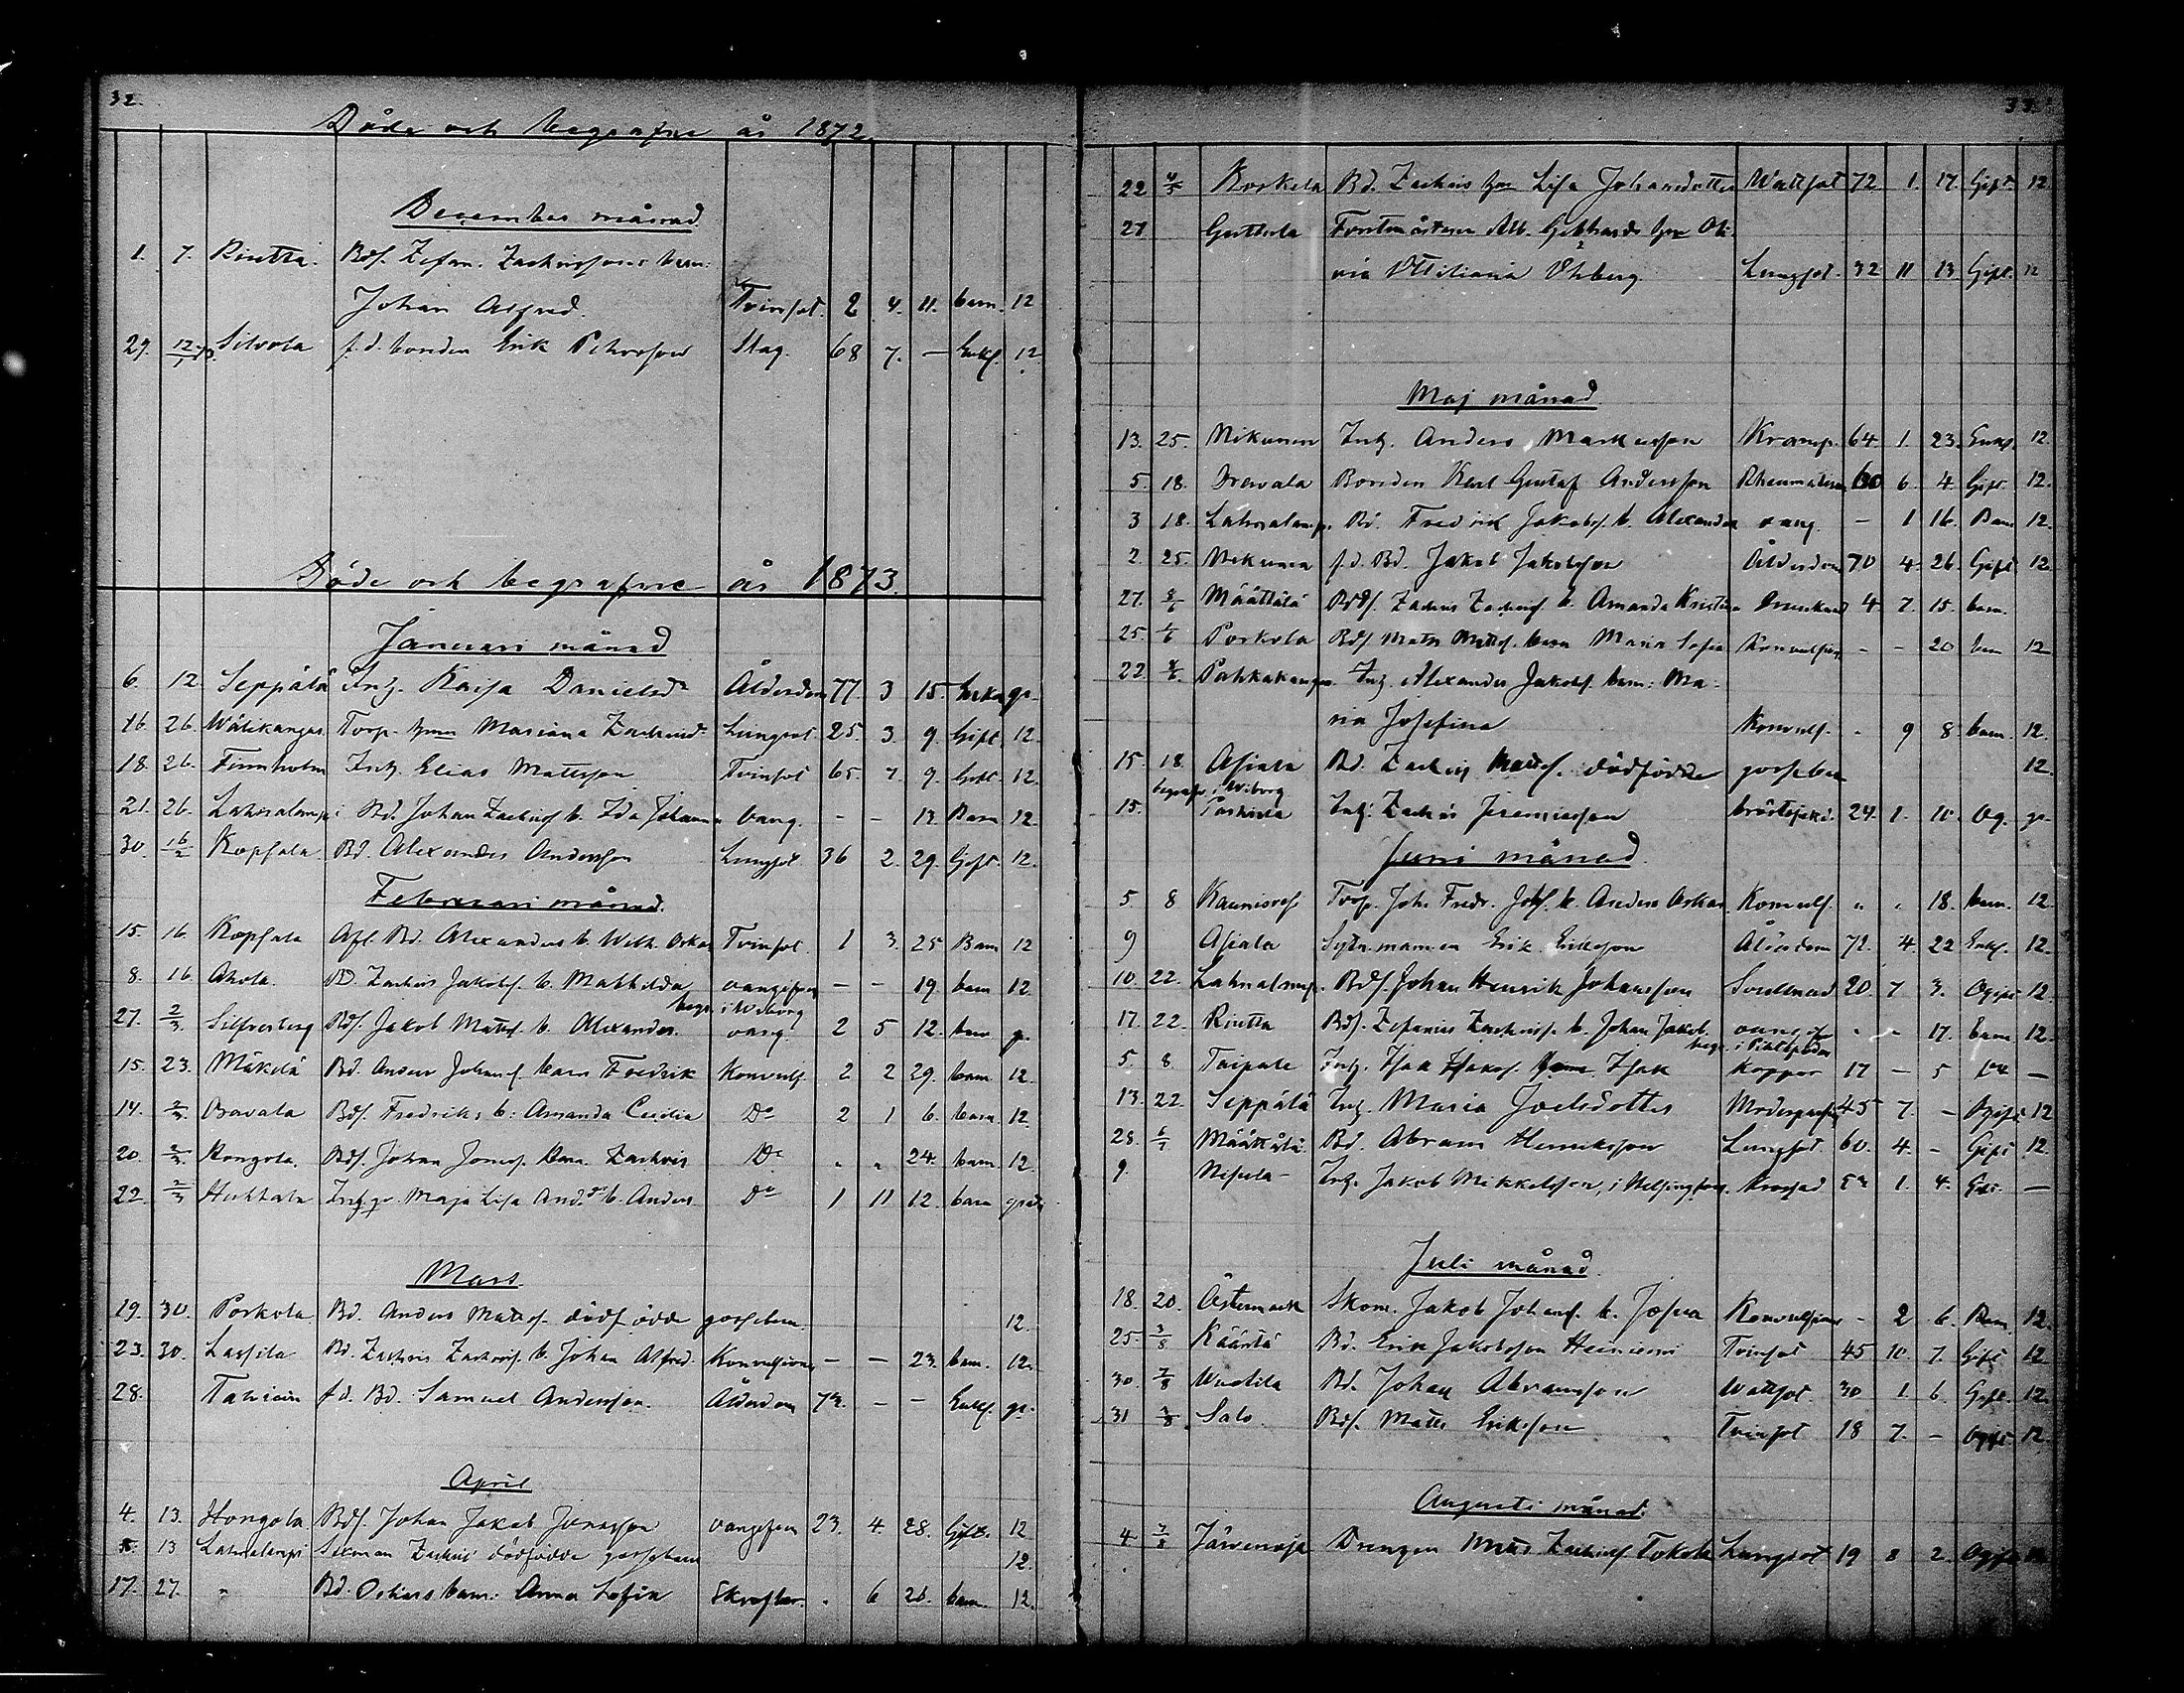 32.
Döde och begrafne år 1872
December månad
1. 7. Riutta. Bdf. Zefan. Zachrissons barn:
Johan Alfred. Tvinsot. 2 4. 11. barn. 12
29. 12/1 73. Silvola f.d. bonden Erik Petersson Slag. 68 7. — Enkl. 12.
Döde och begrafne år 1873.
Januari månad
6. 12. Seppälä Inh. Kaisa Danielsdr Ålderdom 77. 3 15. Enka gr.
16. 26. Wälikangas Torp. hru Mariana Zachrisdr Lungsot. 25. 3. 9. Gift. 12.
18. 26. Finnholm Inh. Elias Mattsson Tvinsot 65. 7. 9. Gift 12.
21. 26. Lahnalampi Bd. Johan Zachrisf. b. Ida Johanna oang. - - 13. Barn 12.
30. 16/2 Kopsala. Bd. Alexander Andersson Lungsot. 36 2. 29. Gift. 12.
Februari månad.
15. 16. Kopsala Afl. Bd. Alexanders b. Wilh. Oskar Tvinsot. 1 3. 25 Barn 12
8. 16 Ahola. Bd. Zachris Jakobs. b. Mathilda oangifven — - 19. barn 12.
begr. i Wiborg
27. 2/3. Silfverberg Bdf. Jakob Mattsf. b. Alexander. oang. 2 5 12. barn gr.
15. 23. Mäkelä Bd. Anders Johansf. barn Fredrik Konvulf. 2 2 29. barn 12.
14. 2/3. Oravala Bdf. Fredriks b: Amanda Cecilia Do 2 1 6. barn 12.
20. 2/3. Kongola. Bdf. Johan Jonasf. barn Zachris Do „ „ 24. barn 12.
22. 2/3 Huhtala Inh. gr. Maja Lisa And.dr b. Anders Do 1 11 12. barn gratis
Mars.
19. 30. Porkola Bd. Anders Mattsf. dödfödde gossebarn. 12.
23. 30. Lassila Bd. Zachris Zachrisf. b. Johan Alfred. Konvulsioner — — 23. barn. 12.
28. f.d. Bd. Samuel Andersson. Ålderdom 73. — — Enkl. gr.
April
4. 13. Hongola Bdf. Johan Jakob Jonasson oangifven 23. 4. 28. Gift. 12
5. 13 Lahnalampi Zachris dödfödde gossebarn 12.
17. 27. „ Bd. Oskars barn: Anna Sofia Skrofler. . 6 26. barn. 12.
33.
22 4/5 Koskela Bd. Zachris hru Lisa Johansdotter Wattsot 72 1. 17. Gift. 12.
27 Forstmästaren Alb. Gebhards hru Oli-
via Ottiliana Ohberg. Lungsot. 32 11 13. Gift. 12
Maj månad
13. 25. Nikunen Inh. Anders Markusson Kramp. 64. 1. 23. Enkl. 12.
5. 18. Oravala Bonden Karl Gustaf Andersson Rheumatism 60 6. 4. Gift. 12.
3 18. Lahnalampi Bd. Fredrik Jakobsf. b. Alexandra oang. — 1 16. Barn 12.
2. 25. Nikunen f.d. Bd. Jakob Jakobsson Ålderdom 70 4. 26. Gift 12.
27. 8/6 Määttälä Bdf. Zachris Zachrisf. b. Amanda Kristina Drunknad 4. 7. 15. barn.
25. 1/6 Porkola Bdf. Matts Mattsf. barn Maria Sofia Konvulsion - - 20 barn 12
22. 8/6. Pahkakangas Inh. Alexander Jakobsf. barn: Ma-
ria Josefina Konvulf. . 9 8 barn. 12.
15. 18. Asiala Bd. Zachris Mattsf. dödfödde gossebarn 12.
begrafv. i Wiborg
15. Inh. Zachris Jeremiasson bröstsjukd. 24. 1. 10. Og. gr.
Juni månad.
5. 8 Torp. Joh. Fredr. Johsf. b. Anders Oskar. Konvulf. „ „ 18. barn. 12.
9 Asiala Sytn. mannen Erik Eriksson Ålderdom 72. 4. 22 Enkl. 12.
10. 22. Lahnalampi. Bdf. Johan Henrik Johansson Svullnad 20. 7 3. Ogift 12.
17. 22. Riutta Bdf. Zefanias Zachrisf. b. Johan Jakob. oangifven „ „ 17. barn. 12.
begr. i Pihtipudas
5. 8. Taipale Inh. Isak Isaksf. Isak Koppor 17 — 5 —
13. 22. Seppälä Inh. Maria Joelsdotter 45 7. — Ogift 12
28. 6/7 Määttälä Bd. Abram Henriksson Lungsot. 60. 4. - Gift 12.
9. Nisula - Inh. Jakob Mikkelsson, i Helsingfors. 1. 4. —
Juli månad.
18. 20. Östermark Skom. Jakob Johansf. b. Josua Konvulsioner - 2 6. Barn. 12.
25. 3/8 Kääntä Bd. Erik Jakobsson Heiniemi Tvinsot 45 10. 7. Gift 12.
30. 3/8 Wuotila Bd. Johan Abramsson Wattsot. 30 1. 6. Gift. 12.
31 3/8 Salo. Bdf. Matts Eriksson Tvinsot 18 7. — Ogift 12.
Augusti månad.
4 Järvenoja Drengen Matts Zachrisf. Tokola Lungsot 19 8 2. Ogift 12